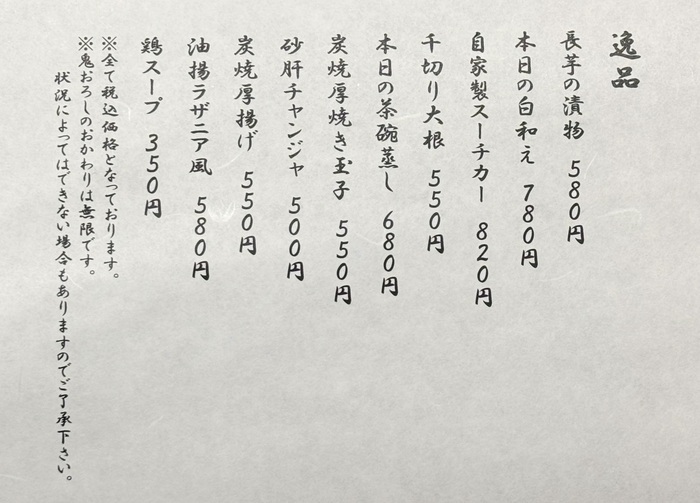 逸品
長芋の漬物 580円
本日の白和え 780円
自家製スーチカー 820円
千切り大根 550円
本日の茶碗蒸し 680円
炭焼厚焼き玉子 550円
砂肝チャンジャ 500円
炭焼厚揚げ 550円
油揚ラザニア風 580円
鶏スープ 350円
※全て税込価格となっております。
※鬼おろしのおかわりは無限です。
状況によってはできない場合もありますのでご了承下さい。